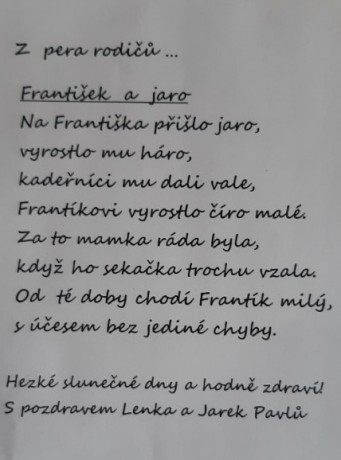 Z pera rodičů ...
František a jaro
Na Františka přišlo jaro,
vyrostlo mu háro,
kadeřníci mu dali vale,
Frantíkovi vyrostlo číro malé.
Za to mamka ráda byla,
když ho sekačka trochu vzala.
Od té doby chodí Frantík milý,
s účesem bez jediné chyby.
Hezké slunečné dny a hodně zdraví!
S pozdravem Lenka a Jarek Pavlů